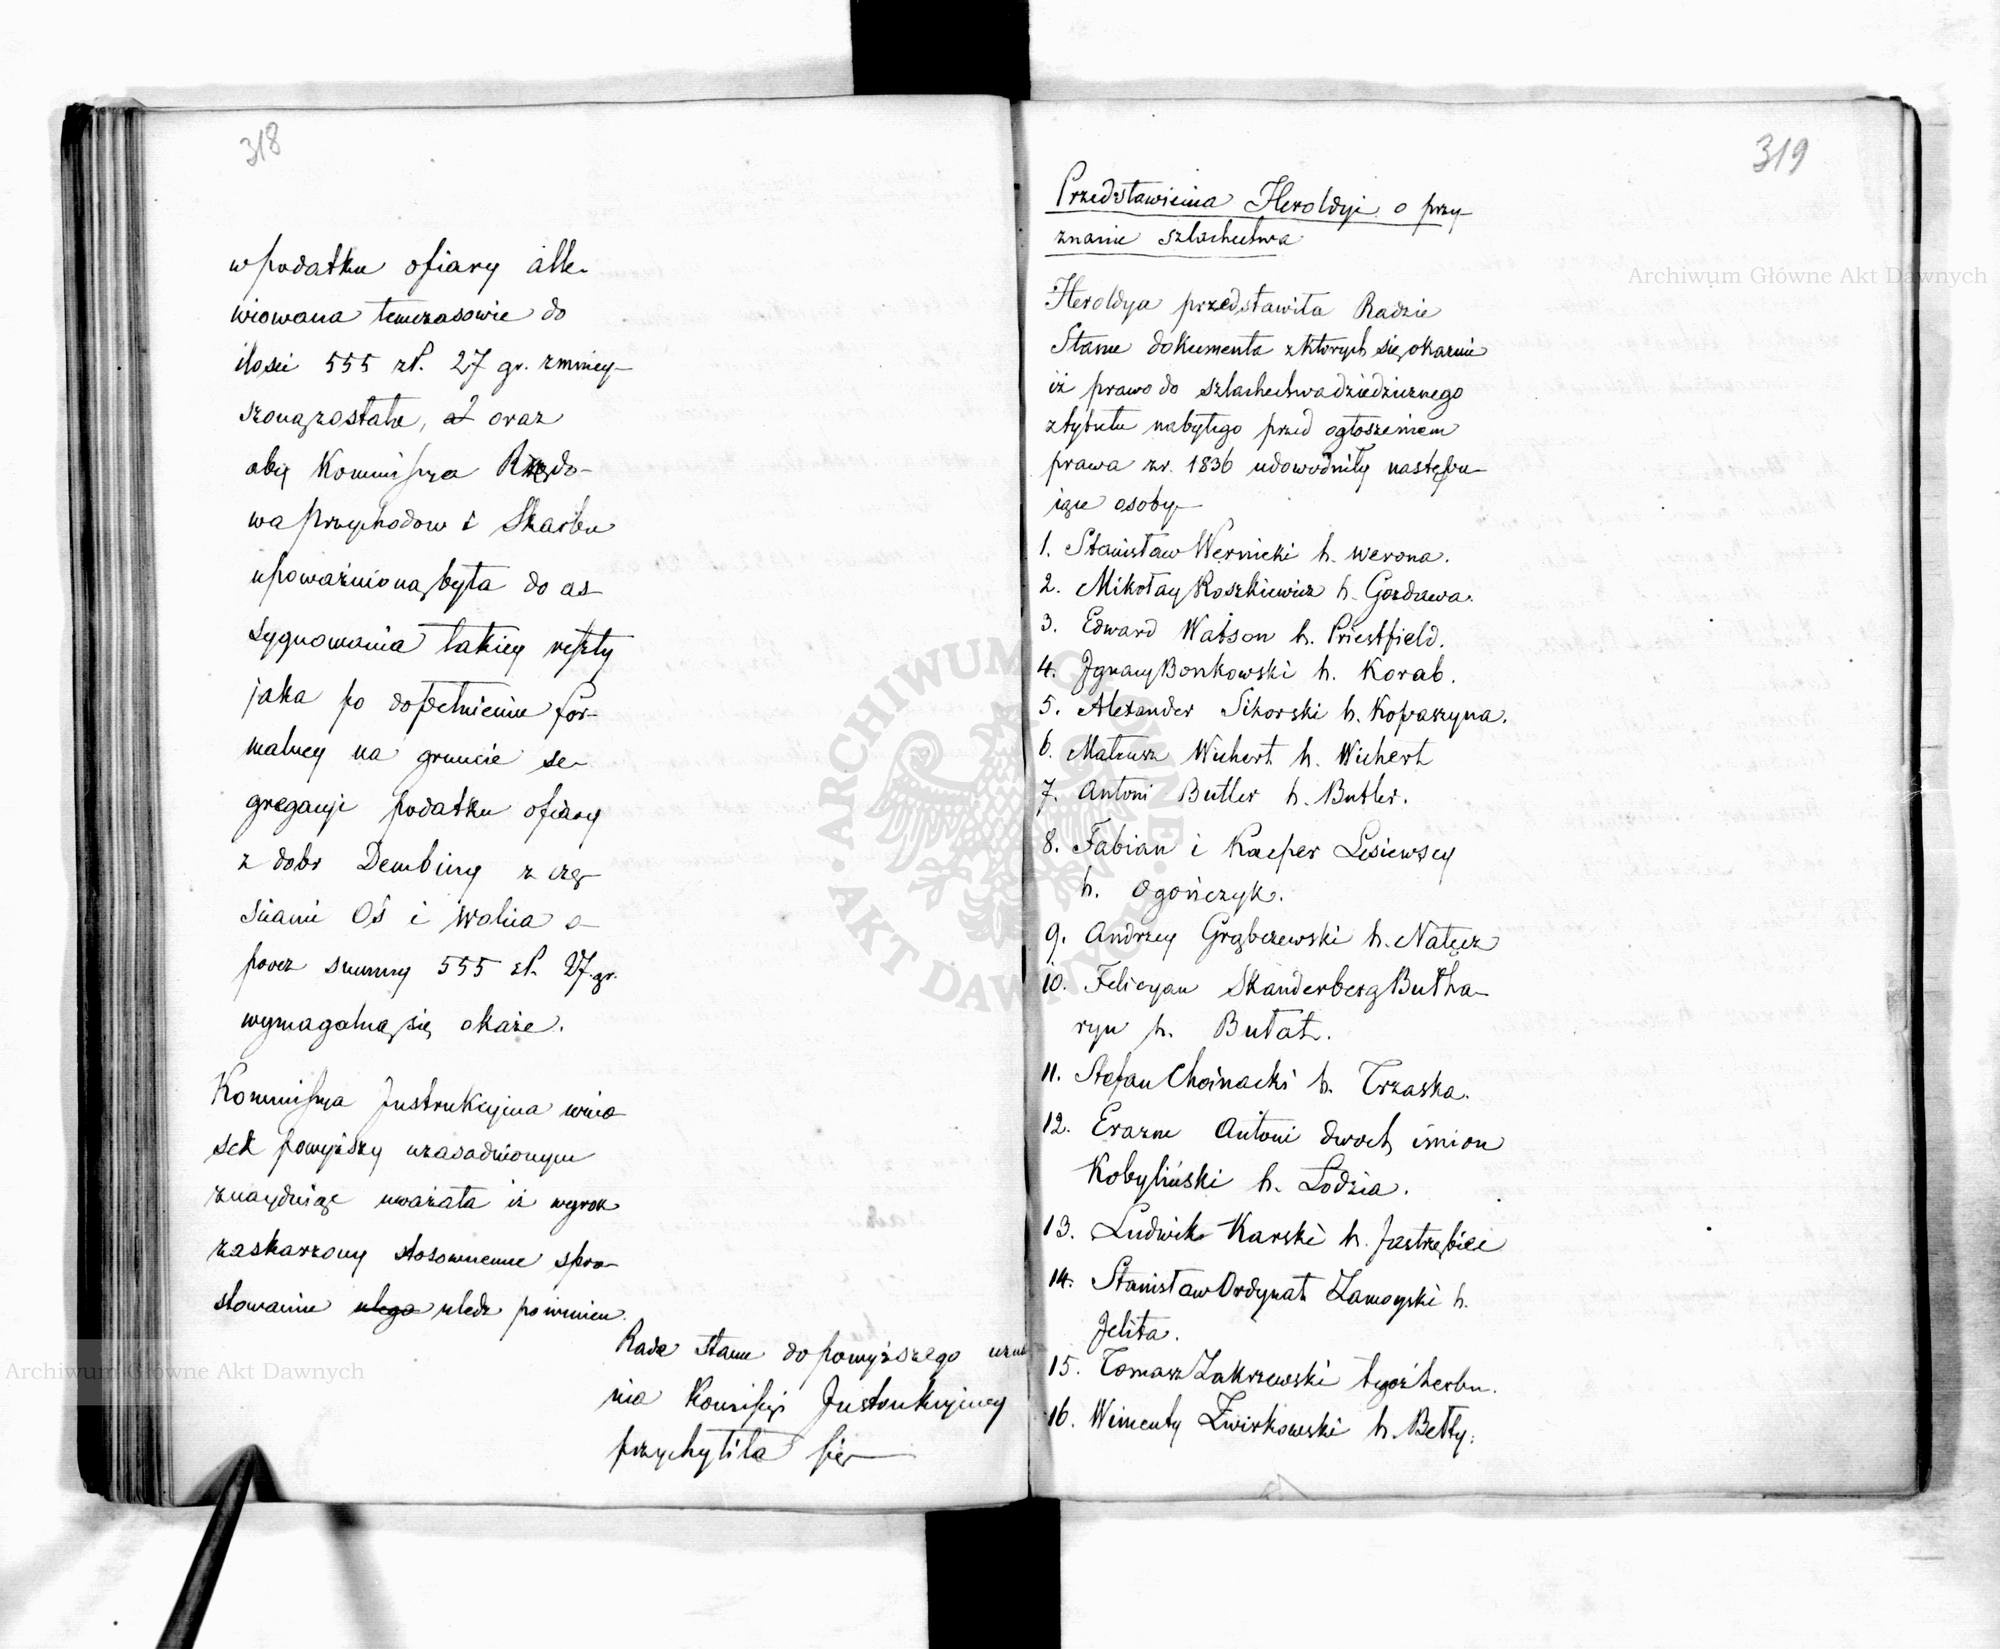 318
w podatku ofiary alle-
wiowana temczasowie do
ilości 555 zł. 27 gr. zmniey-
szoną została, oraz
aby Kommissya Rządo-
wa Przychodow i Skarbu
upoważnioną była do as-
sygnowania takiey reszty
jaka po dopełnieniu for-
malney na gruncie se-
gregacyi podatku ofiary
z dobr Dembiny z czę-
ściami Oś i Wolica o-
procz summy 555 zł. 27. gr.
wymagalną się okaże.
Kommissya Instrukcyina wnio-
sek powyższy uzasadnionym
znayduiąc uważała iż wyrok
zaskarżony stosownemu spro-
stowaniu ulega uledz powinien.
Rada Stanu do powyższego
nia Komisyi Instrukcyiney
przychyliła się
319
Przedstawienia Heroldyi o przy-
znanie szlachectwa
Heroldya przedstawiła Radzie
Stanu dokumenta z których się okazuie
iż prawo do szlachectwa dziedzicznego
z tytułu nabytego przed ogłoszeniem
prawa z r. 1836 udowodniły następu-
iące osoby
1. Stanisław Wernicki h. Werona.
2. Mikołay Koszkiewicz h. Gozdawa.
3. Edward Watson h. Priestfield.
4. Ignacy Bonkowski h. Korab.
5. Alexander Sikorski h. Kopaszyna.
6. Mateusz Wichert h. Wichert
7. Antoni Butler h. Butler.
8. Fabian i Kacper Lesiewscy
h. Ogończyk.
9. Andrzey Grąbczewski h. Nałęcz
10. Felicyan Skanderberg Butha-
ryn h. Bułat.
11. Stefan Choinacki h. Trzaska.
12. Erazm Antoni dwoch imion
Kobyliński h. Lodzia.
13. Ludwik Karski h. Jastrzębiec
14. Stanisław Ordynat Zamoyski h.
Jelita.
15. Tomasz Zakrzewski tegoż herbu.
16. Wincenty Zwirkowski h. Bełty.
Archiwum Główne Akt Dawnych
Archiwum Główne Akt Dawnych
ARCHIWUM GŁÓWNE AKT DAWNYCH